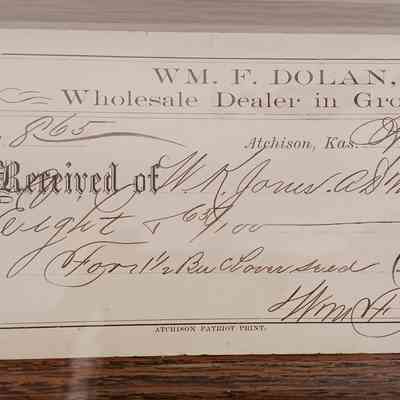 WM. F. DOLAN,
Wholesale Dealer in Gro
865
Atchison, Kas.
Received of W. R. Jones
Eight & 65/100
For 1½ Bu Clover seed
Wm F
ATCHISON PATRIOT PRINT.